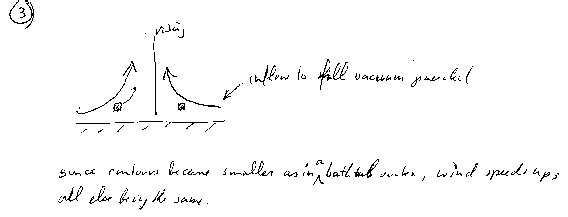 ③
rising
inflow to fill vacuum
since contours become smaller as in a bathtub vortex, wind speeds up,
all else being the same.